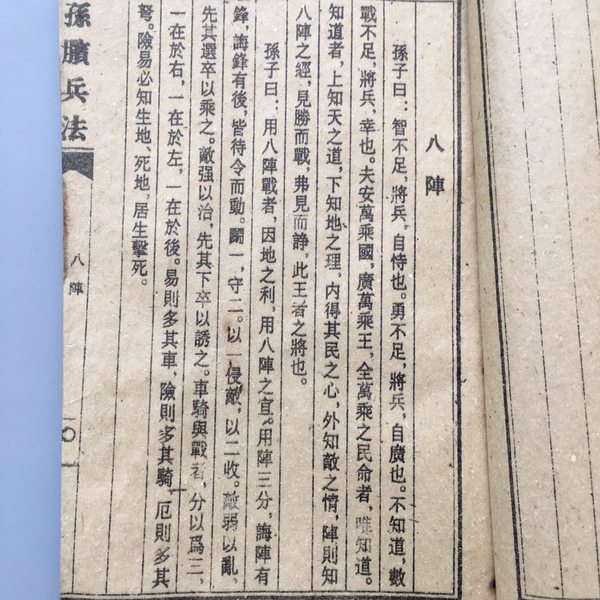 八陣
孫子曰：智不足，將兵，自恃也。勇不足，將兵，自廣也。不知道，數
戰不足，將兵，幸也。夫安萬乘國，廣萬乘王，全萬乘之民命者，唯知道。
知道者，上知天之道，下知地之理，内得其民之心，外知敵之情，陣則知
八陣之經，見勝而戰，弗見而諍，此王者之將也。
孫子曰：用八陣戰者，因地之利，用八陣之宜。用陣三分，誨陣有
鋒，誨鋒有後，皆待令而動。鬭一，守二。以一侵敵，以二收。敵弱以亂，
先其選卒以乘之。敵强以治，先其下卒以誘之。車騎與戰者，分以爲三，
一在於右，一在於左，一在於後。易則多其車，險則多其騎，厄則多其
弩。險易必知生地、死地，居生擊死。
孫臏兵法
八陣
一〇